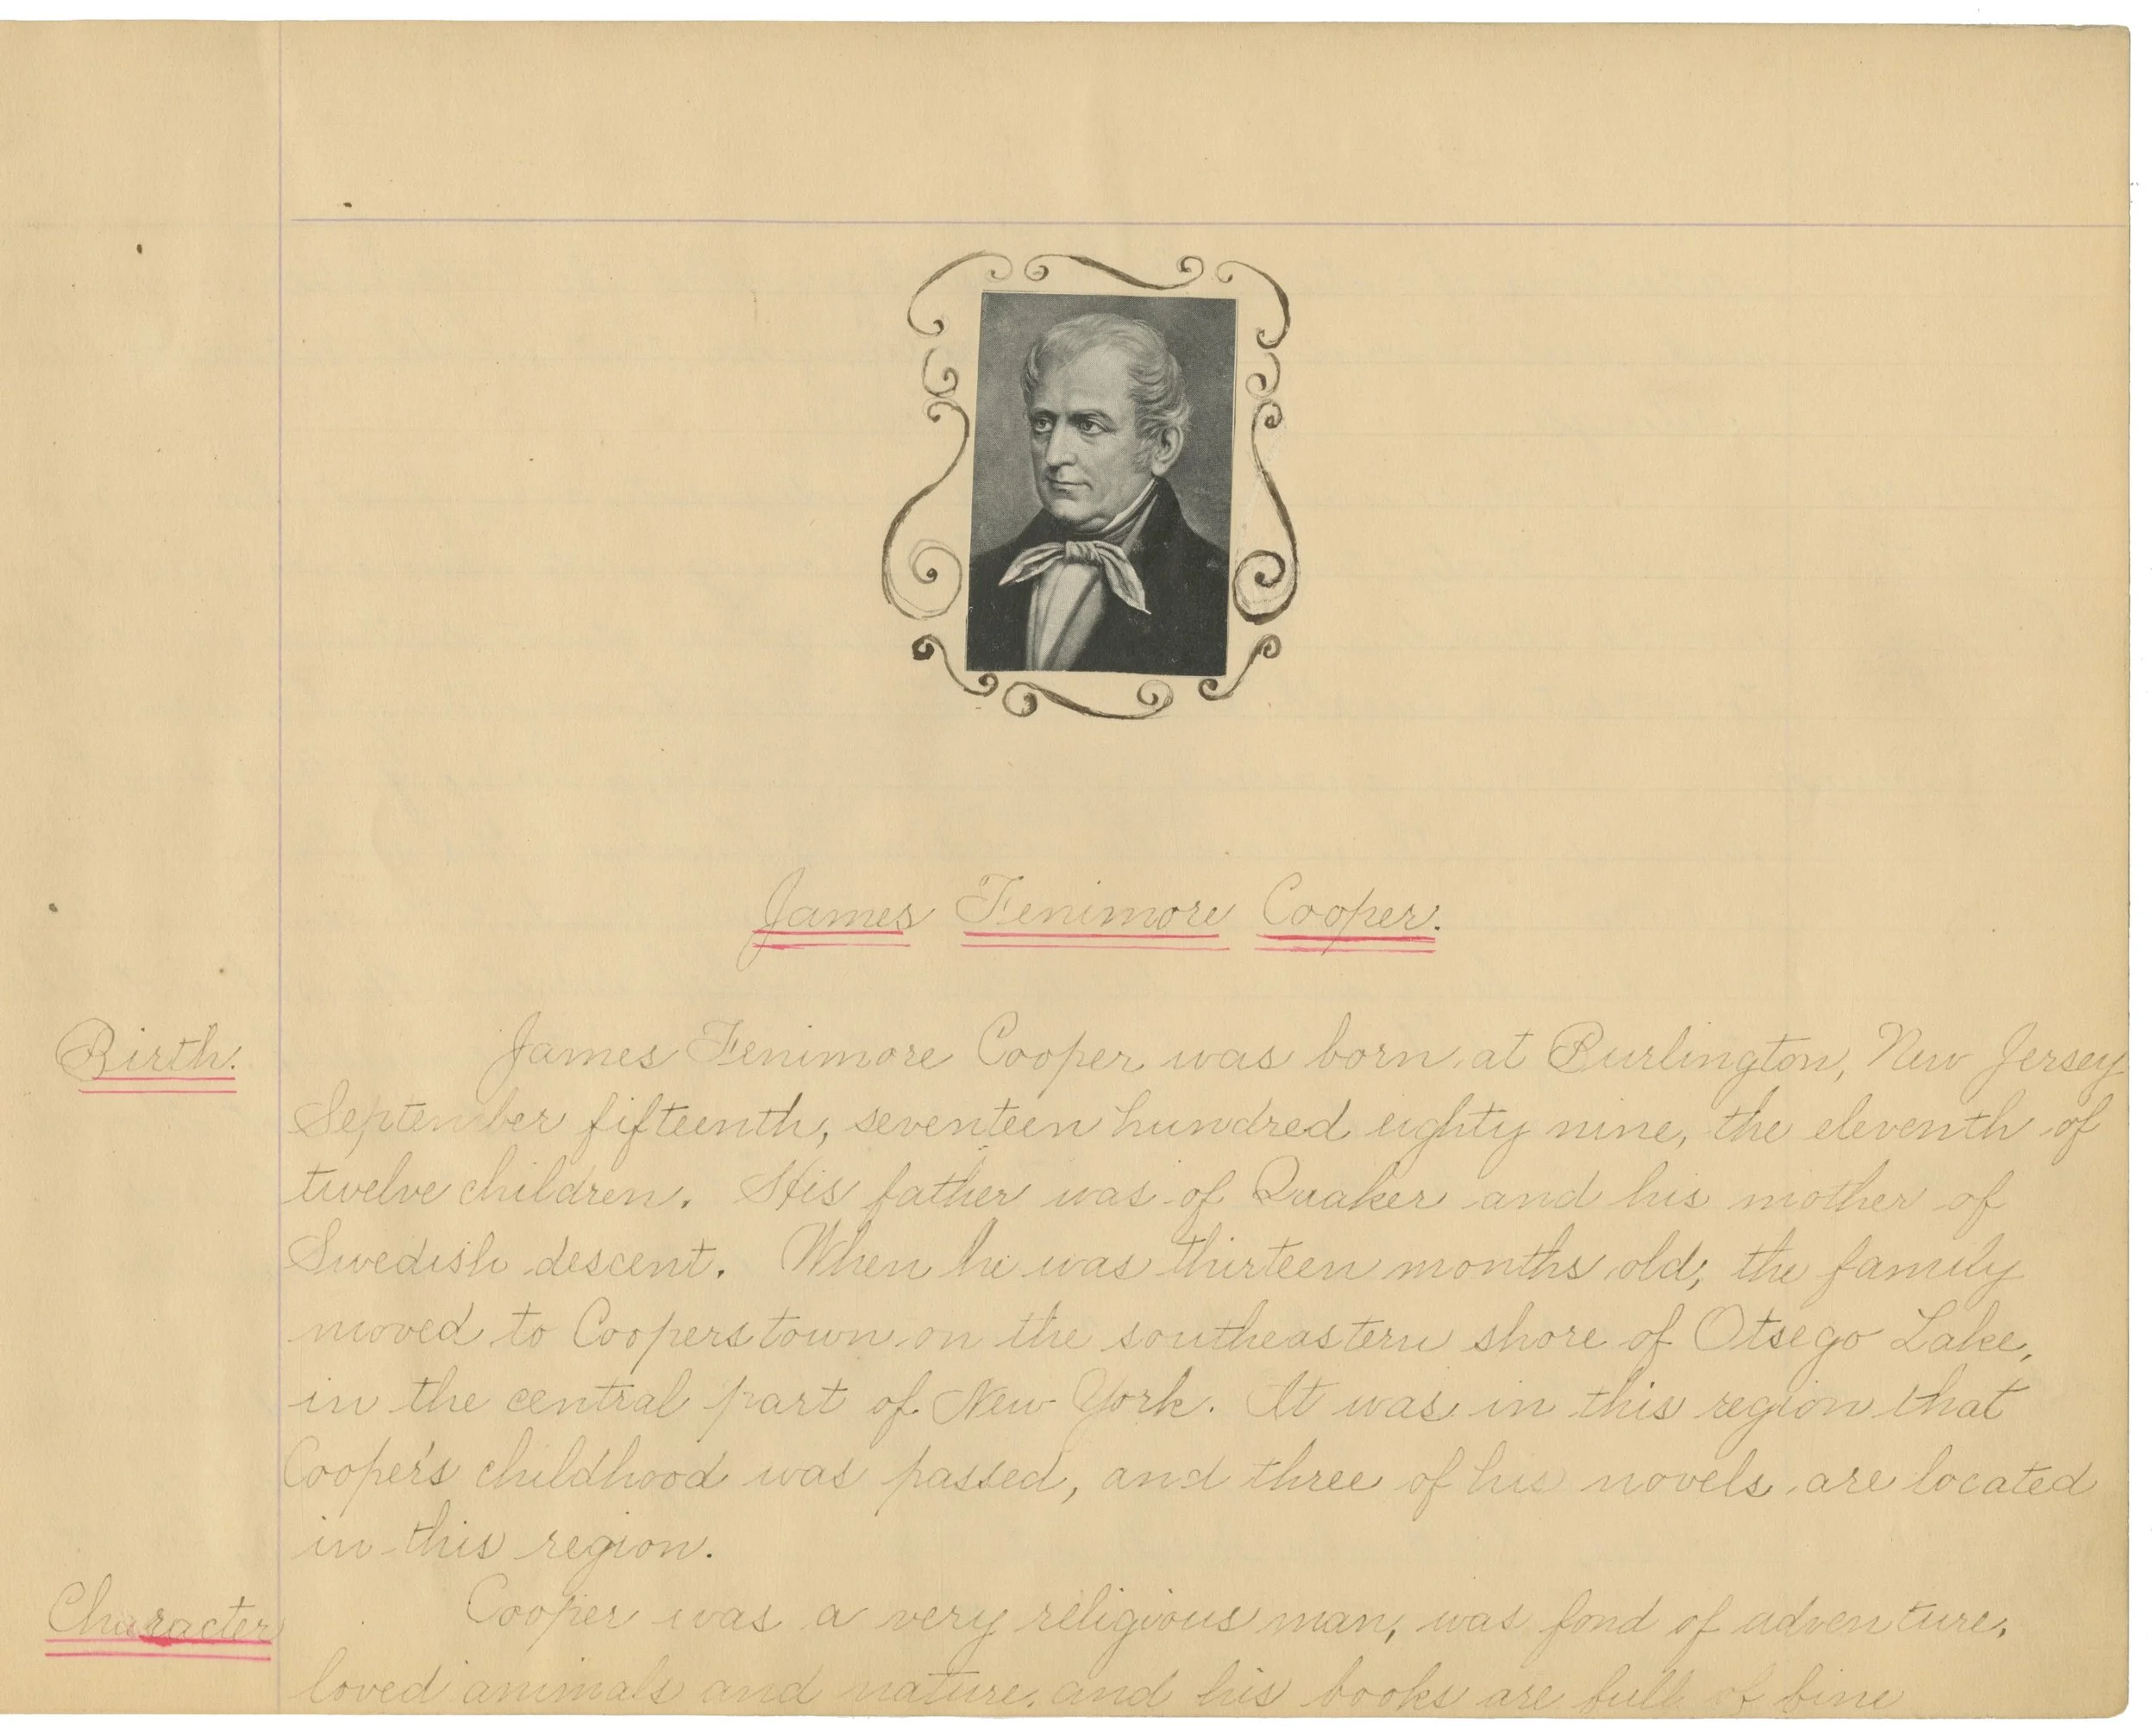 James Fenimore Cooper.
Birth.
James Fenimore Cooper was born at Burlington, New Jersey
September fifteenth, seventeen hundred eighty nine, the eleventh of
twelve children. His father was of Quaker and his mother of
Swedish descent. When he was thirteen months old, the family
moved to Cooperstown on the southeastern shore of Otsego Lake,
in the central part of New York. It was in this region that
Cooper's childhood was passed, and three of his novels are located
in this region.
Character
Cooper was a very religious man, was fond of adventure,
loved animals and nature, and his books are full of fine